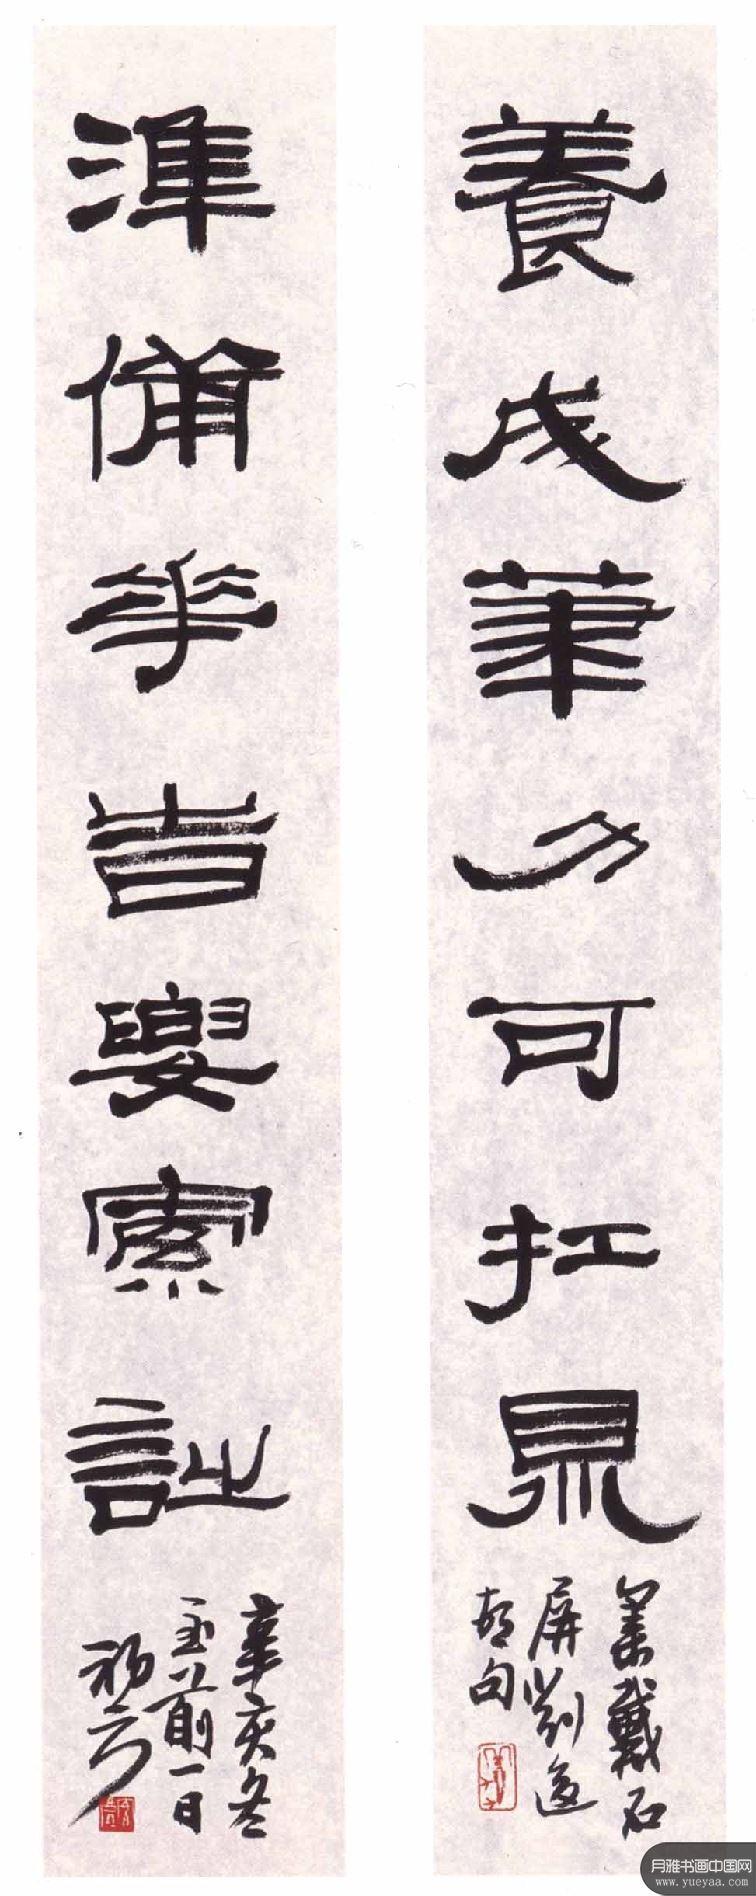 養成筆力可扛鼎
集戴石
屏劉過
句
準備華旹要索詩
辛亥冬
至前一日
月雅书画中国网
www.yueyaa.com